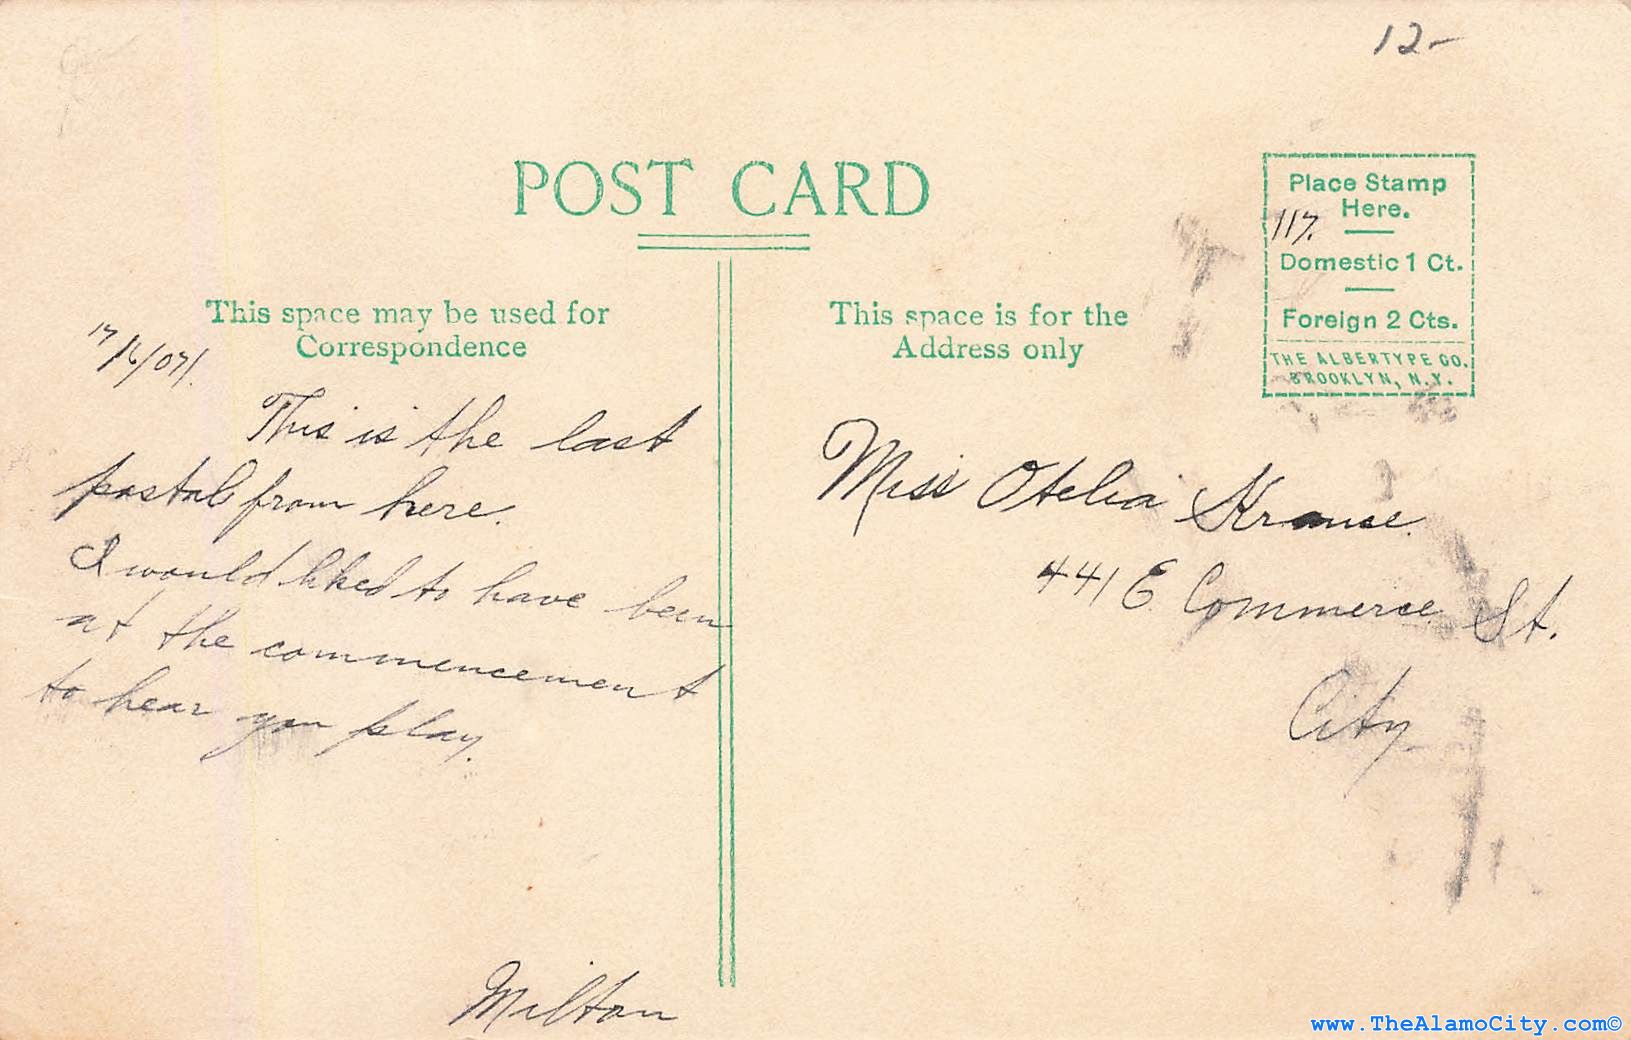 12-
POST CARD
Place Stamp
Here.
117.
Domestic 1 Ct.
Foreign 2 Cts.
THE ALBERTYPE CO.
BROOKLYN, N.Y.
This space may be used for
Correspondence
This space is for the
Address only
This is the last
postal from here.
I would liked to have been
at the commencement
to hear you play.
Milton
Miss Otelia Krause
441 E. Commerce St.
City
www.TheAlamoCity.com©